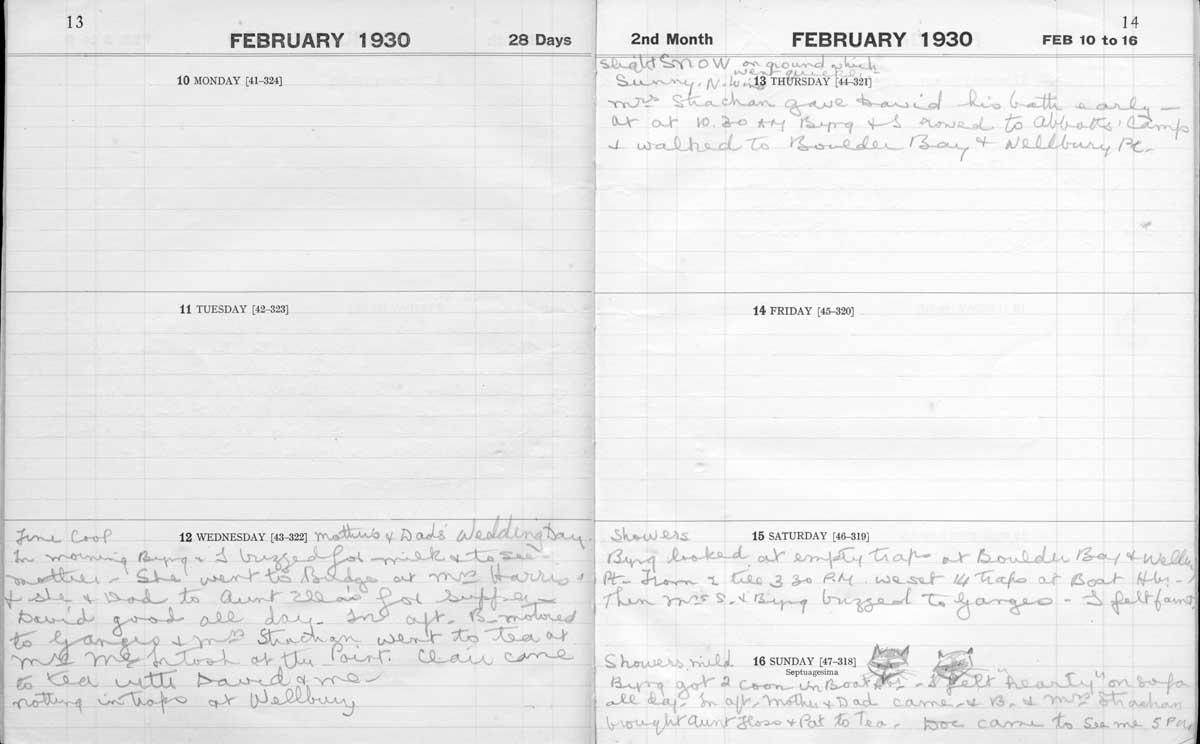 13
FEBRUARY 1930
28 Days
10 MONDAY [41–324]
11 TUESDAY [42–323]
12 WEDNESDAY [43–322] Mother's & Dad's Wedding Day.
Fine Cool
In morning Byng & I buzzed for milk & to see
mother – She went to Bridge at Mrs Harris'
& she & Dad to Aunt Ella's for supper –
David good all day – In aft. B– motored
to Ganges & Mrs Strachan went to tea at
Mrs McIntosh at the Point. Clair came
to tea with David & me –
nothing in traps at Wellbury
14
2nd Month
FEBRUARY 1930
FEB 10 to 16
Slight Snow on ground which
went quickly
Sunny. N. Wind
13 THURSDAY [44–321]
Mrs Strachan gave David his bath early –
at at 10.30 AM Byng & I rowed to Abbotts' Camp
& walked to Boulder Bay & Wellbury Pt.
14 FRIDAY [45–320]
Showers
15 SATURDAY [46–319]
Byng looked at empty traps at Boulder Bay &
Pt – from 2 till 3 30 P.M. we set 14 traps at Boat Hbr –
Then Mrs S. & Byng buzzed to Ganges – I felt faint
Showers, mild
16 SUNDAY [47–318]
Septuagesima
Byng got 2 coon in Boat – I felt "hearty" on sofa
all day – In aft. Mother & Dad came – & B. & Mrs Strachan
brought Aunt Floss & Pat to Tea – Doc came to see me 5 P.M.